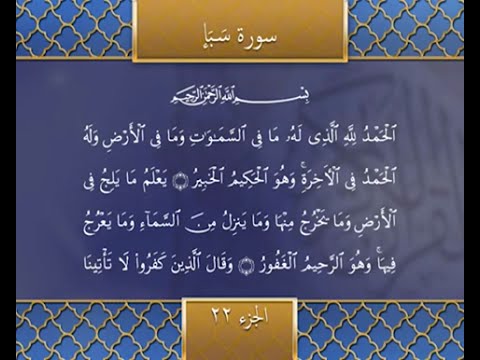 سورة سَبَإ
بِسْمِ ٱللَّهِ ٱلرَّحْمَٰنِ ٱلرَّحِيمِ
ٱلْحَمْدُ لِلَّهِ ٱلَّذِى لَهُۥ مَا فِى ٱلسَّمَٰوَٰتِ وَمَا فِى ٱلْأَرْضِ وَلَهُ
ٱلْحَمْدُ فِى ٱلْأَخِرَةِ ۚ وَهُوَ ٱلْحَكِيمُ ٱلْخَبِيرُ ۝١ يَعْلَمُ مَا يَلِجُ فِى
ٱلْأَرْضِ وَمَا يَخْرُجُ مِنْهَا وَمَا يَنزِلُ مِنَ ٱلسَّمَآءِ وَمَا يَعْرُجُ
فِيهَا ۚ وَهُوَ ٱلرَّحِيمُ ٱلْغَفُورُ ۝٢ وَقَالَ ٱلَّذِينَ كَفَرُوا۟ لَا تَأْتِينَا
الجزء ٢٢